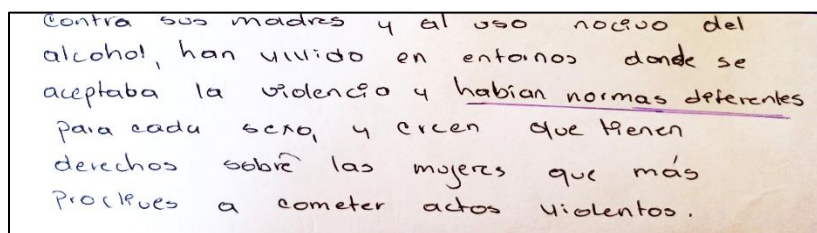 contra sus madres y al uso nocivo del
alcohol, han vivido en entornos donde se
aceptaba la violencia y habían normas diferentes
para cada sexo, y creen que tienen
derechos sobre las mujeres que más
proclives a cometer actos violentos.